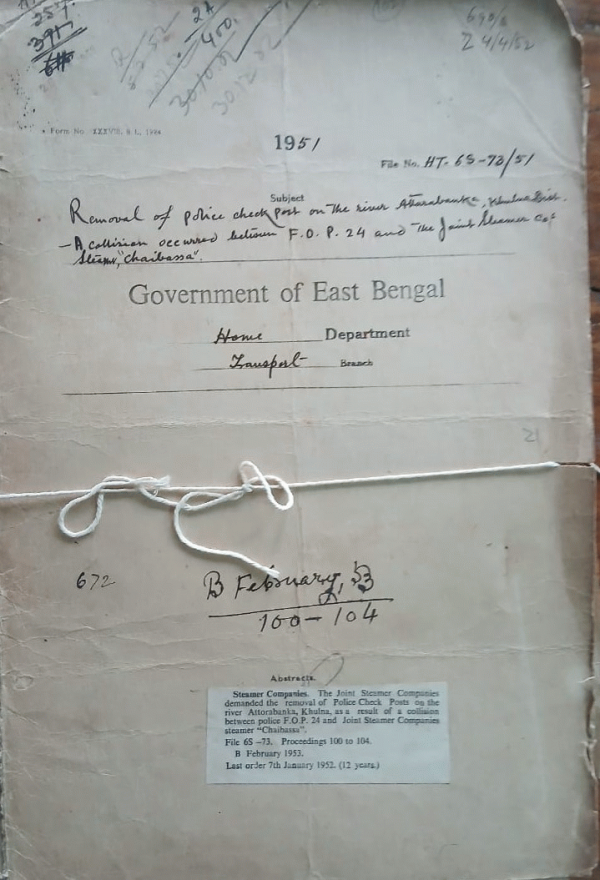 2A
400.
24/4/52
30.10.52
30.12.52
Form No. XXXVIII, B.L., 1944
1951
File No. HT. 6S-73/51
Subject
Removal of police check post on the river Attarabanka, Khulna Dist.
- A collision occurred between F.O.P. 24 and the Joint Steamer Co's
Steamer, "Chaibassa".
Government of East Bengal
Home Department
Transport Branch
21
672
B February, 53
100-104
Abstracts.
Steamer Companies. The Joint Steamer Companies
demanded the removal of Police Check Posts on the
river Attorabanka, Khulna, as a result of a collision
between police F.O.P. 24 and Joint Steamer Companies
steamer "Chaibassa".
File 6S-73. Proceedings 100 to 104.
B February 1953.
Last order 7th January 1952. (12 years.)